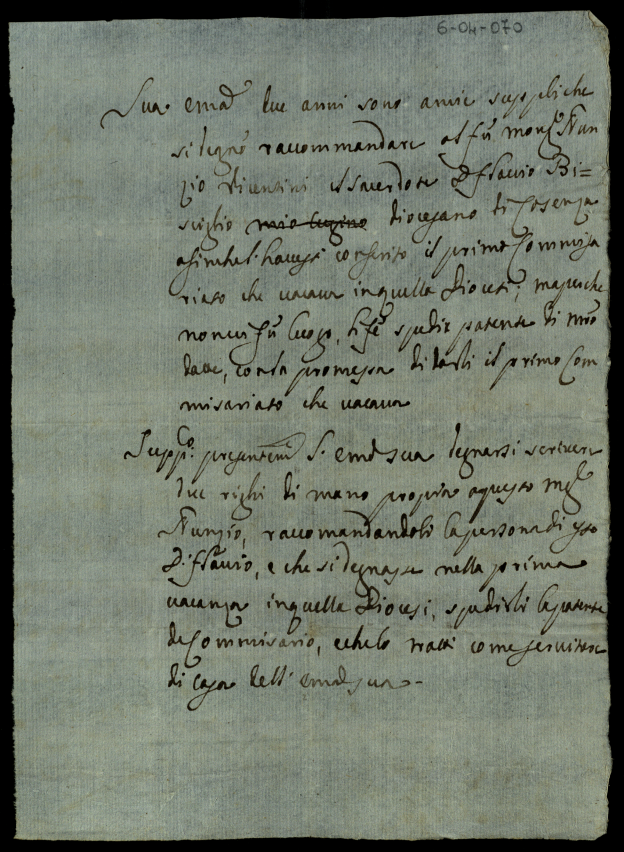 6-04-070
Sua em.a due anni sono a mie suppliche
si degnò raccommandare al fù Mons.r Nun
zio Vicentini il Sacerdote D. Flavio Bi=
sciglio mio Cugino diocesano di Cosenza
affinche l'havesse conferito il primo Commissa
riato che vacava in quella Diocesi; ma perche
non vi fù luogo, li fè spedir patente di
dare, con la promessa di darli il primo Com
misariato che vacava
Supp.co presentem.e S. em.a sua degnarsi scrivere
due righi di mano propria a questo Mg.r
Nunzio, raccomandandoli la persona di esso
D. Flavio, e che si degnasse nella prima
vacanza in quella Diocesi, spedirli la patente
de Commisario, e che lo tratti come servitore
di casa dell' em.a sua -